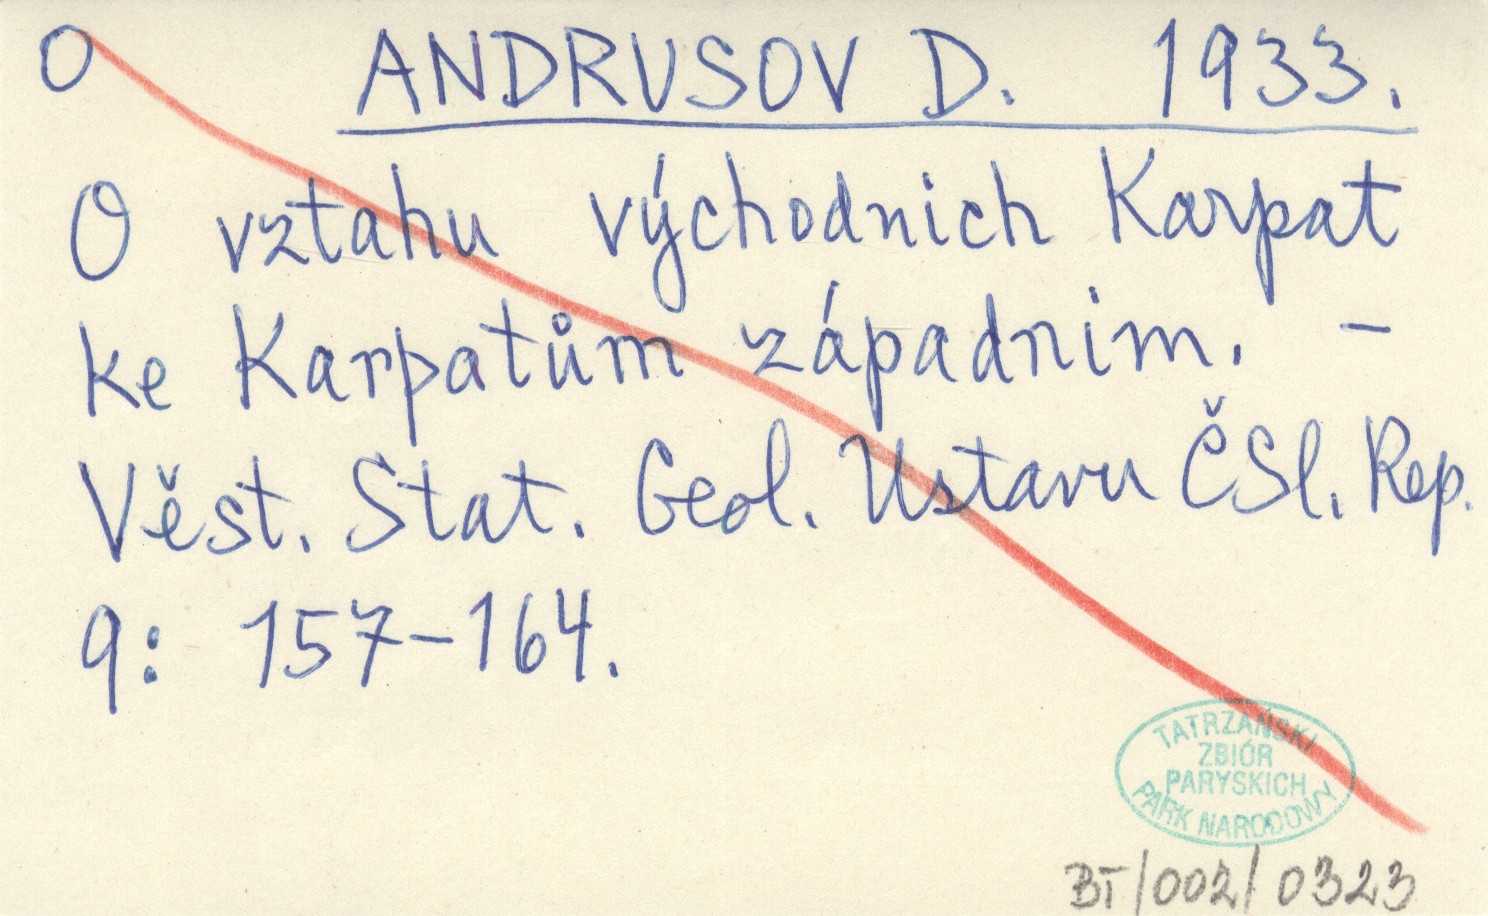 O ANDRUSOV D. 1933.
O vztahu východnich Karpat
ke Karpatům západnim. –
Věst. Stat. Geol. Ustavu ČSl. Rep.
9: 157–164.
TATRZAŃSKI
ZBIÓR
PARYSKICH
PARK NARODOWY
BT/002/0323